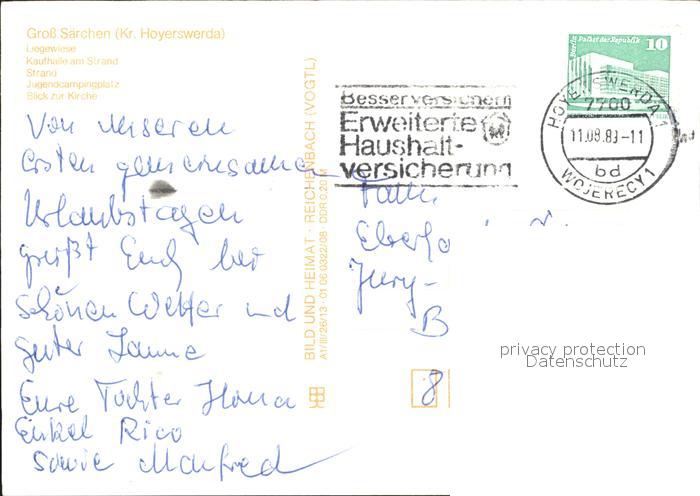 Groß Särchen (Kr. Hoyerswerda)
Liegewiese
Kaufhalle am Strand
Strand
Jugendcampingplatz
Blick zur Kirche
Von unseren
ersten gemeinsamen
Urlaubstagen
grüßt Euch bei
schönen Wetter und
guter Laune
Eure Tochter Ilona
Enkel Rico
sowie Manfred
BILD UND HEIMAT · REICHENBACH (VOGTL)
A1/III/26/13 · 01 06 0322/08 · DDR 0,20 M
Besser versichern
Erweiterte
Haushalt-
versicherung
Berlin Palast der Republik
10
DDR
HOYERSWERDA 1
7700
11.08.83-11
bd
WOJERECY 1
Fam.
Eberha
Jury-
B
8
privacy protection
Datenschutz